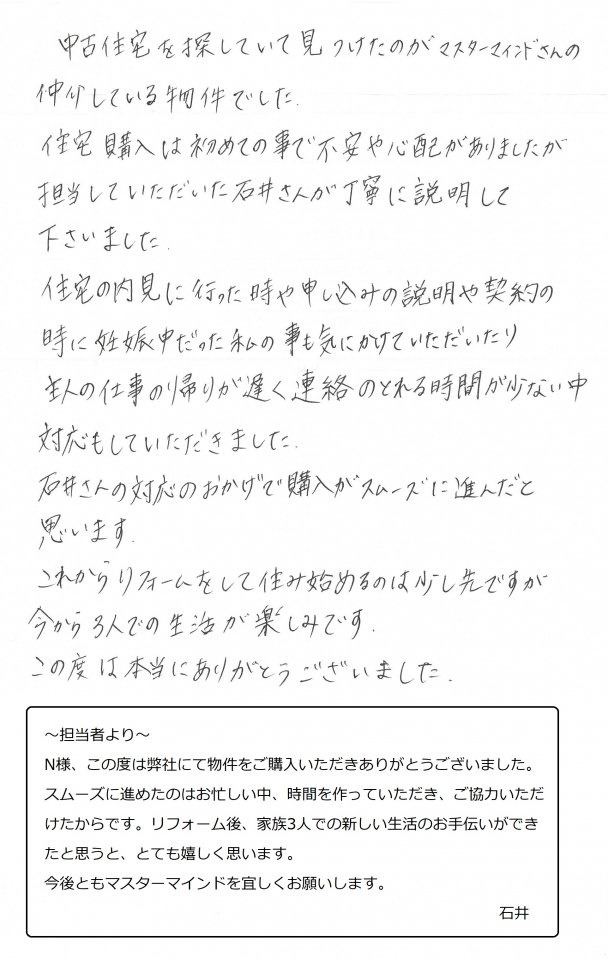 中古住宅を探していて見つけたのがマスターマインドさんの
仲介している物件でした.
住宅購入は初めての事で不安や心配がありましたが
担当していただいた石井さんが丁寧に説明して
下さいました.
住宅の内見に行った時や申し込みの説明や契約の
時に妊娠中だった私の事も気にかけていただいたり
主人の仕事の帰りが遅く連絡のとれる時間が少ない中
対応もしていただきました.
石井さんの対応のおかげで購入がスムーズに進んだと
思います.
これからリフォームをして住み始めるのは少し先ですが
今から3人での生活が楽しみです.
この度は本当にありがとうございました.
～担当者より～
N様、この度は弊社にて物件をご購入いただきありがとうございました。
スムーズに進めたのはお忙しい中、時間を作っていただき、ご協力いただ
けたからです。リフォーム後、家族3人での新しい生活のお手伝いができ
たと思うと、とても嬉しく思います。
今後ともマスターマインドを宜しくお願いします。
石井